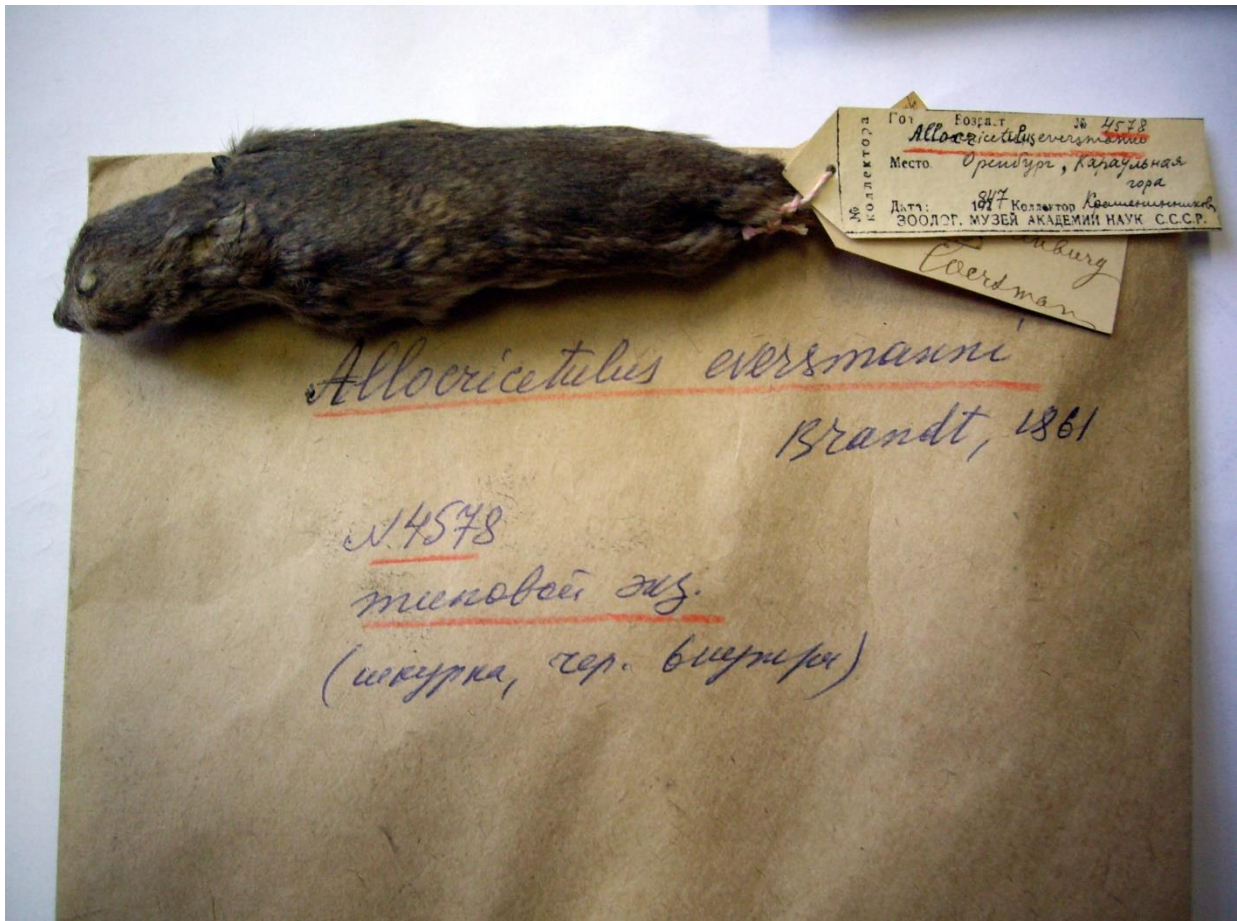 № коллектора
Пол Возраст № 4578
Allocricetulus eversmanni
Место Оренбург, Караульная
гора
Дата: 1847 Коллектор Крашенинников
ЗООЛОГ. МУЗЕЙ АКАДЕМИИ НАУК С.С.С.Р.
Eversman
Allocricetulus eversmanni
Brandt, 1861
N 4578
типовой экз.
(шкурка, чер. внутри)